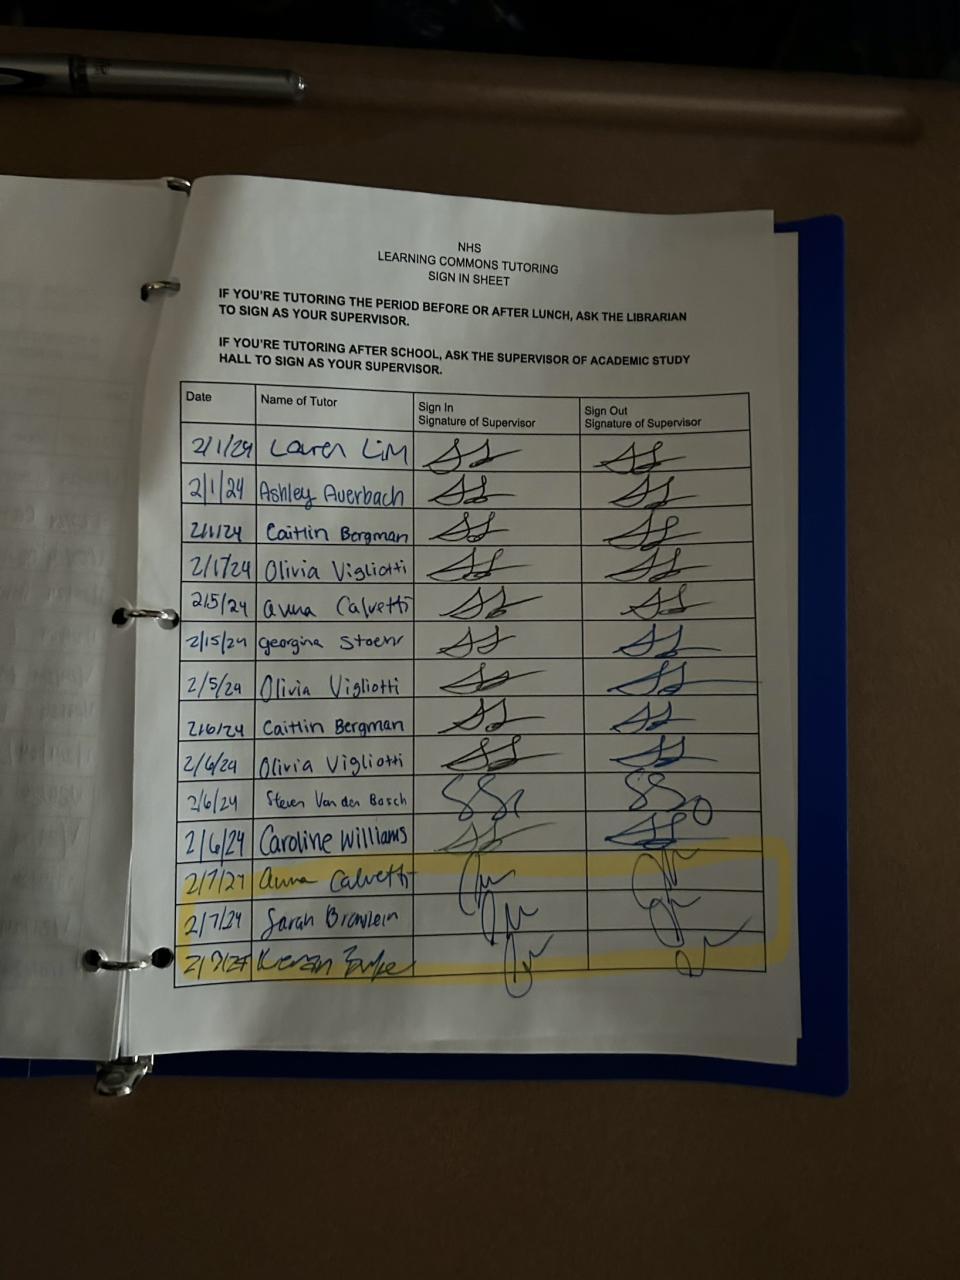 NHS
LEARNING COMMONS TUTORING
SIGN IN SHEET
IF YOU'RE TUTORING THE PERIOD BEFORE OR AFTER LUNCH, ASK THE LIBRARIAN
TO SIGN AS YOUR SUPERVISOR.
IF YOU'RE TUTORING AFTER SCHOOL, ASK THE SUPERVISOR OF ACADEMIC STUDY
HALL TO SIGN AS YOUR SUPERVISOR.
Date Name of Tutor Sign In Sign Out
Signature of Supervisor Signature of Supervisor
2/1/24 Lauren Lim
2/1/24 Ashley Auerbach
2/1/24 Caitlin Bergman
2/1/24 Olivia Vigliotti
2/5/24 Anna Calvetti
2/15/24 Georgina
2/5/24 Olivia Vigliotti
2/6/24 Caitlin Bergman
2/6/24 Olivia Vigliotti
2/6/24 Steven Van den Bosch
2/6/24 Caroline Williams
Anna Calvetti
2/7/24 Sarah